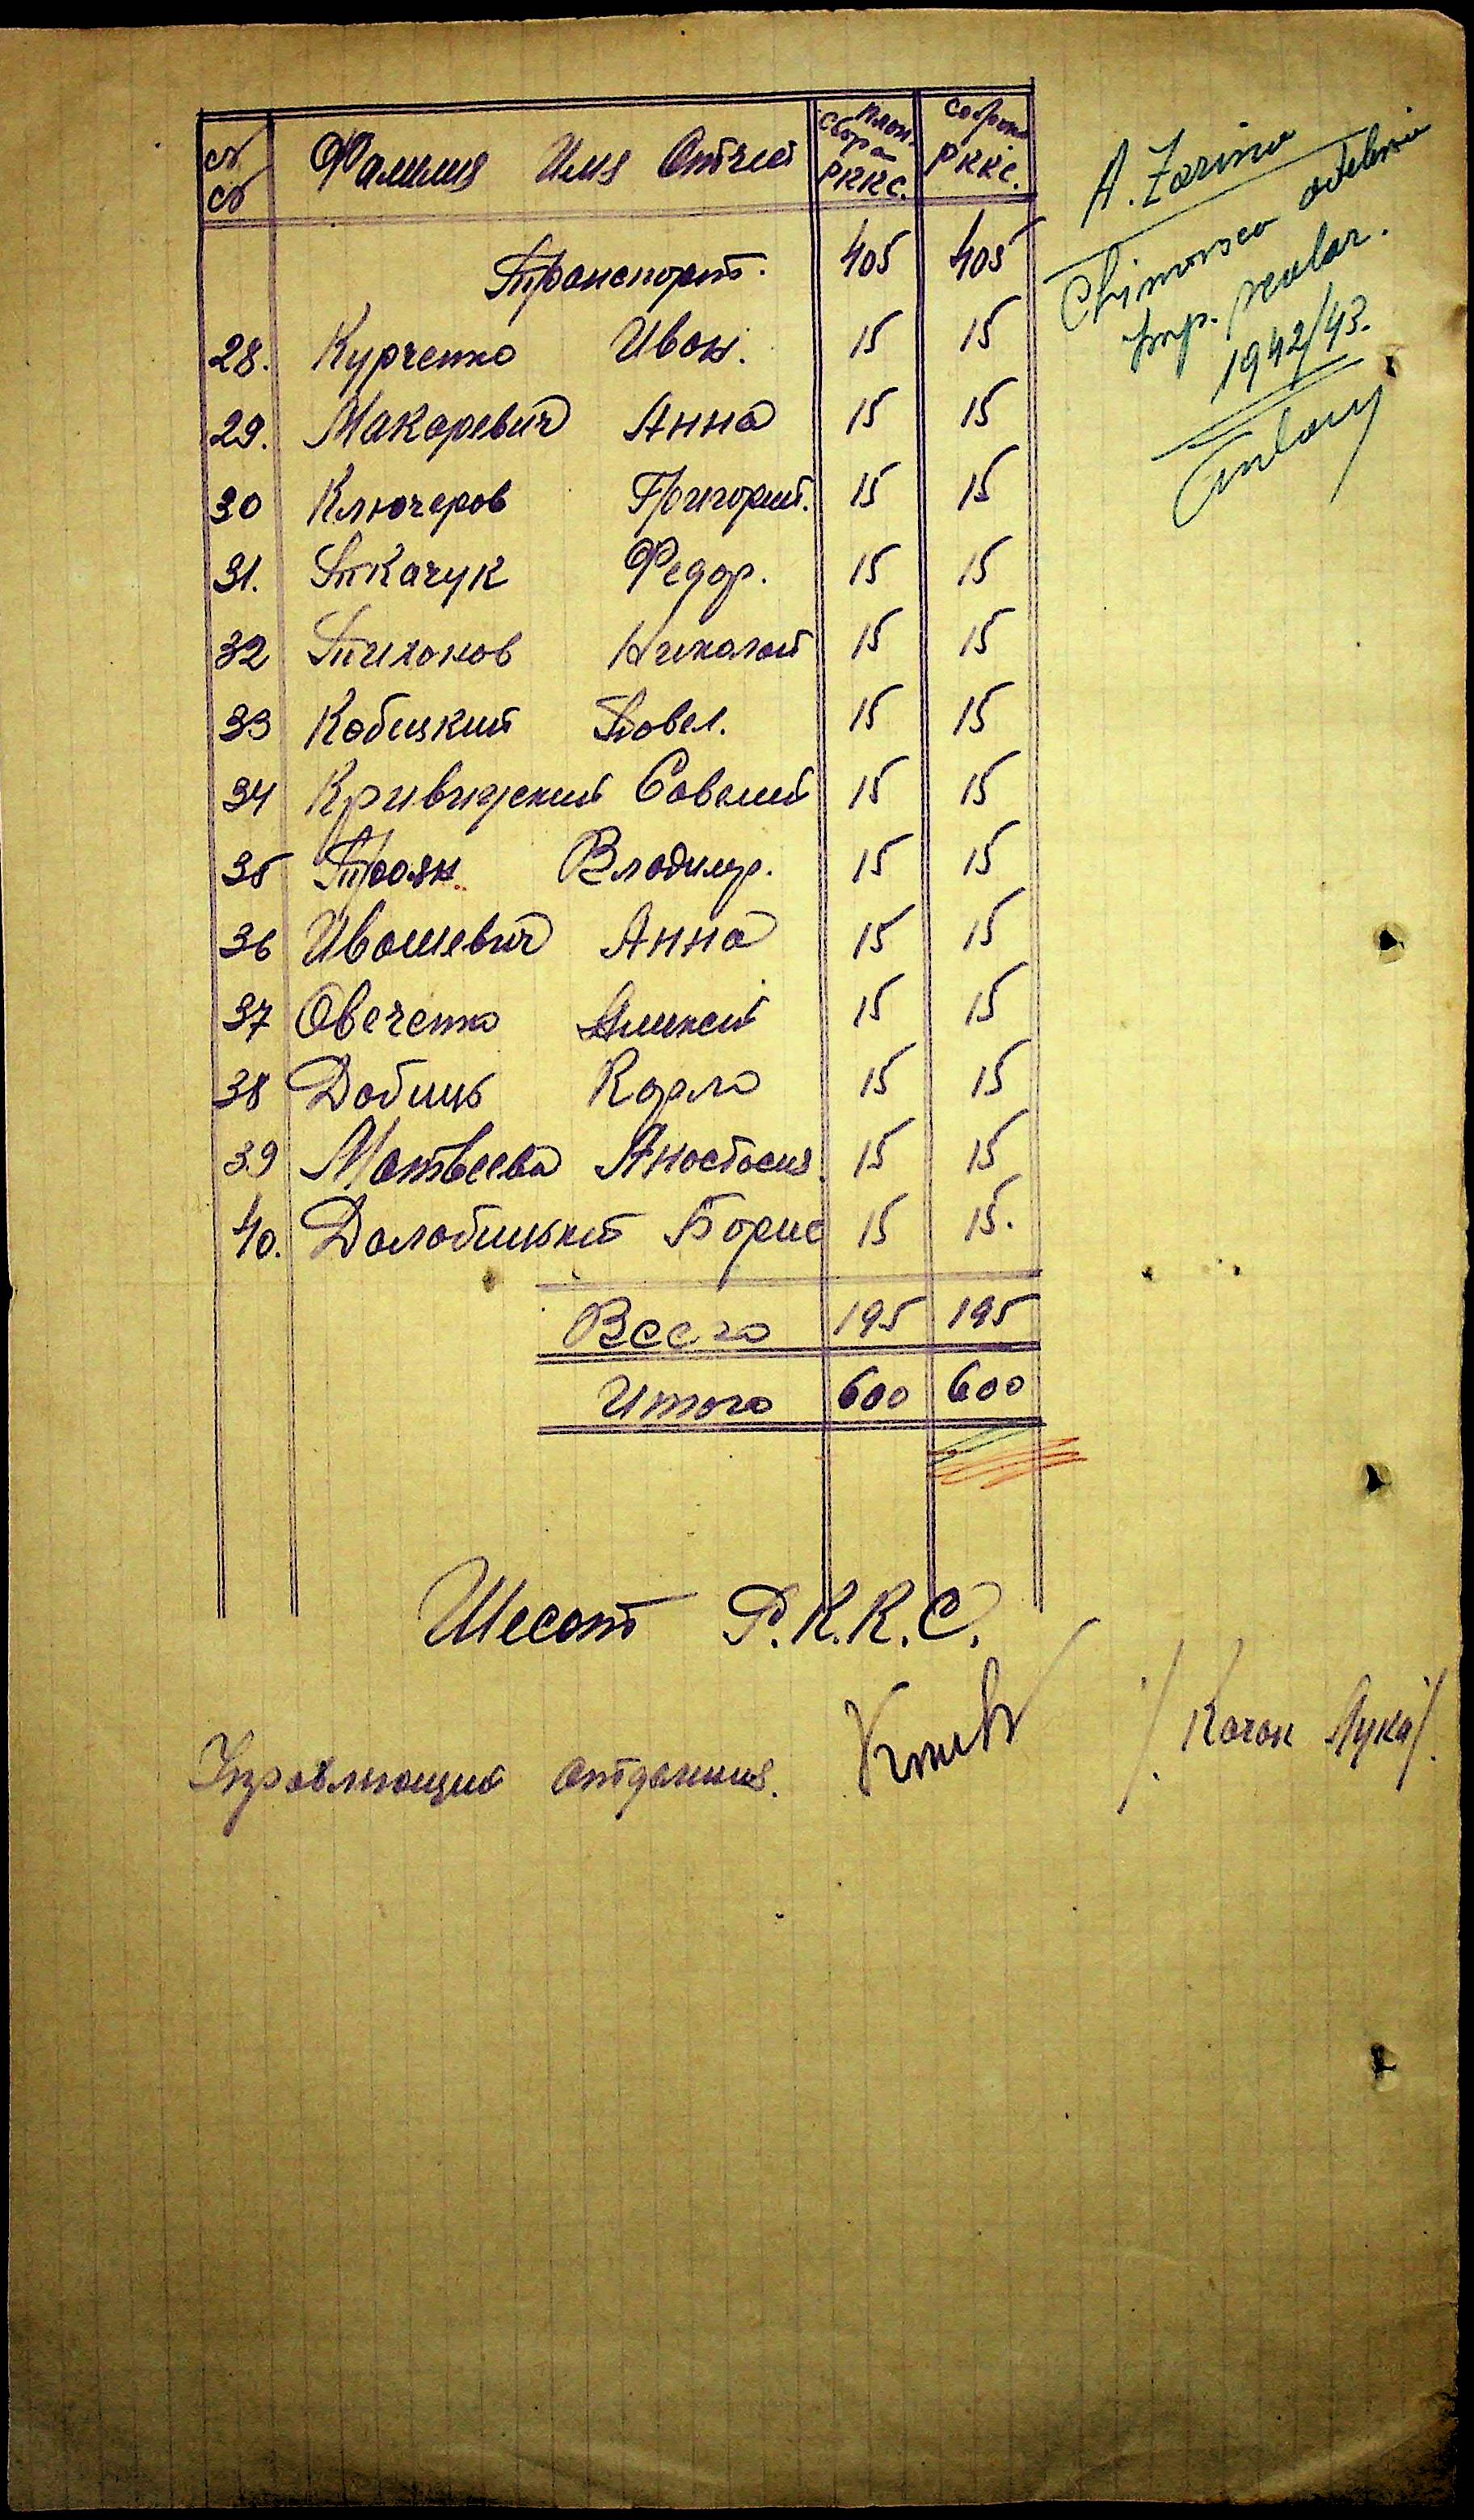 № № Фамилия Имя Отчес План Сбора РККС. Собрано РККС.
Транспорт. 405 405
28. Курченко Иван. 15 15
29. Макаревич Анна 15 15
30 Ключеров Григорий. 15 15
31. Ткачук Федор. 15 15
32 Тихонов Николай 15 15
33 Кобицкий Павел. 15 15
34 Савелий 15 15
35 Троян Владимр. 15 15
36 Ивашевич Анна 15 15
37 Овеченко 15 15
38 Добиць Карло 15 15
39 Матвеева Анастасия 15 15
40. Долобицкий Борис 15 15.
Всего 195 195
Итого 600 600
Шесот Р.К.К.С.
Управляющий отделения.
/ Качан Лука/.
A. Zarina
imp. scolar.
1942/43.